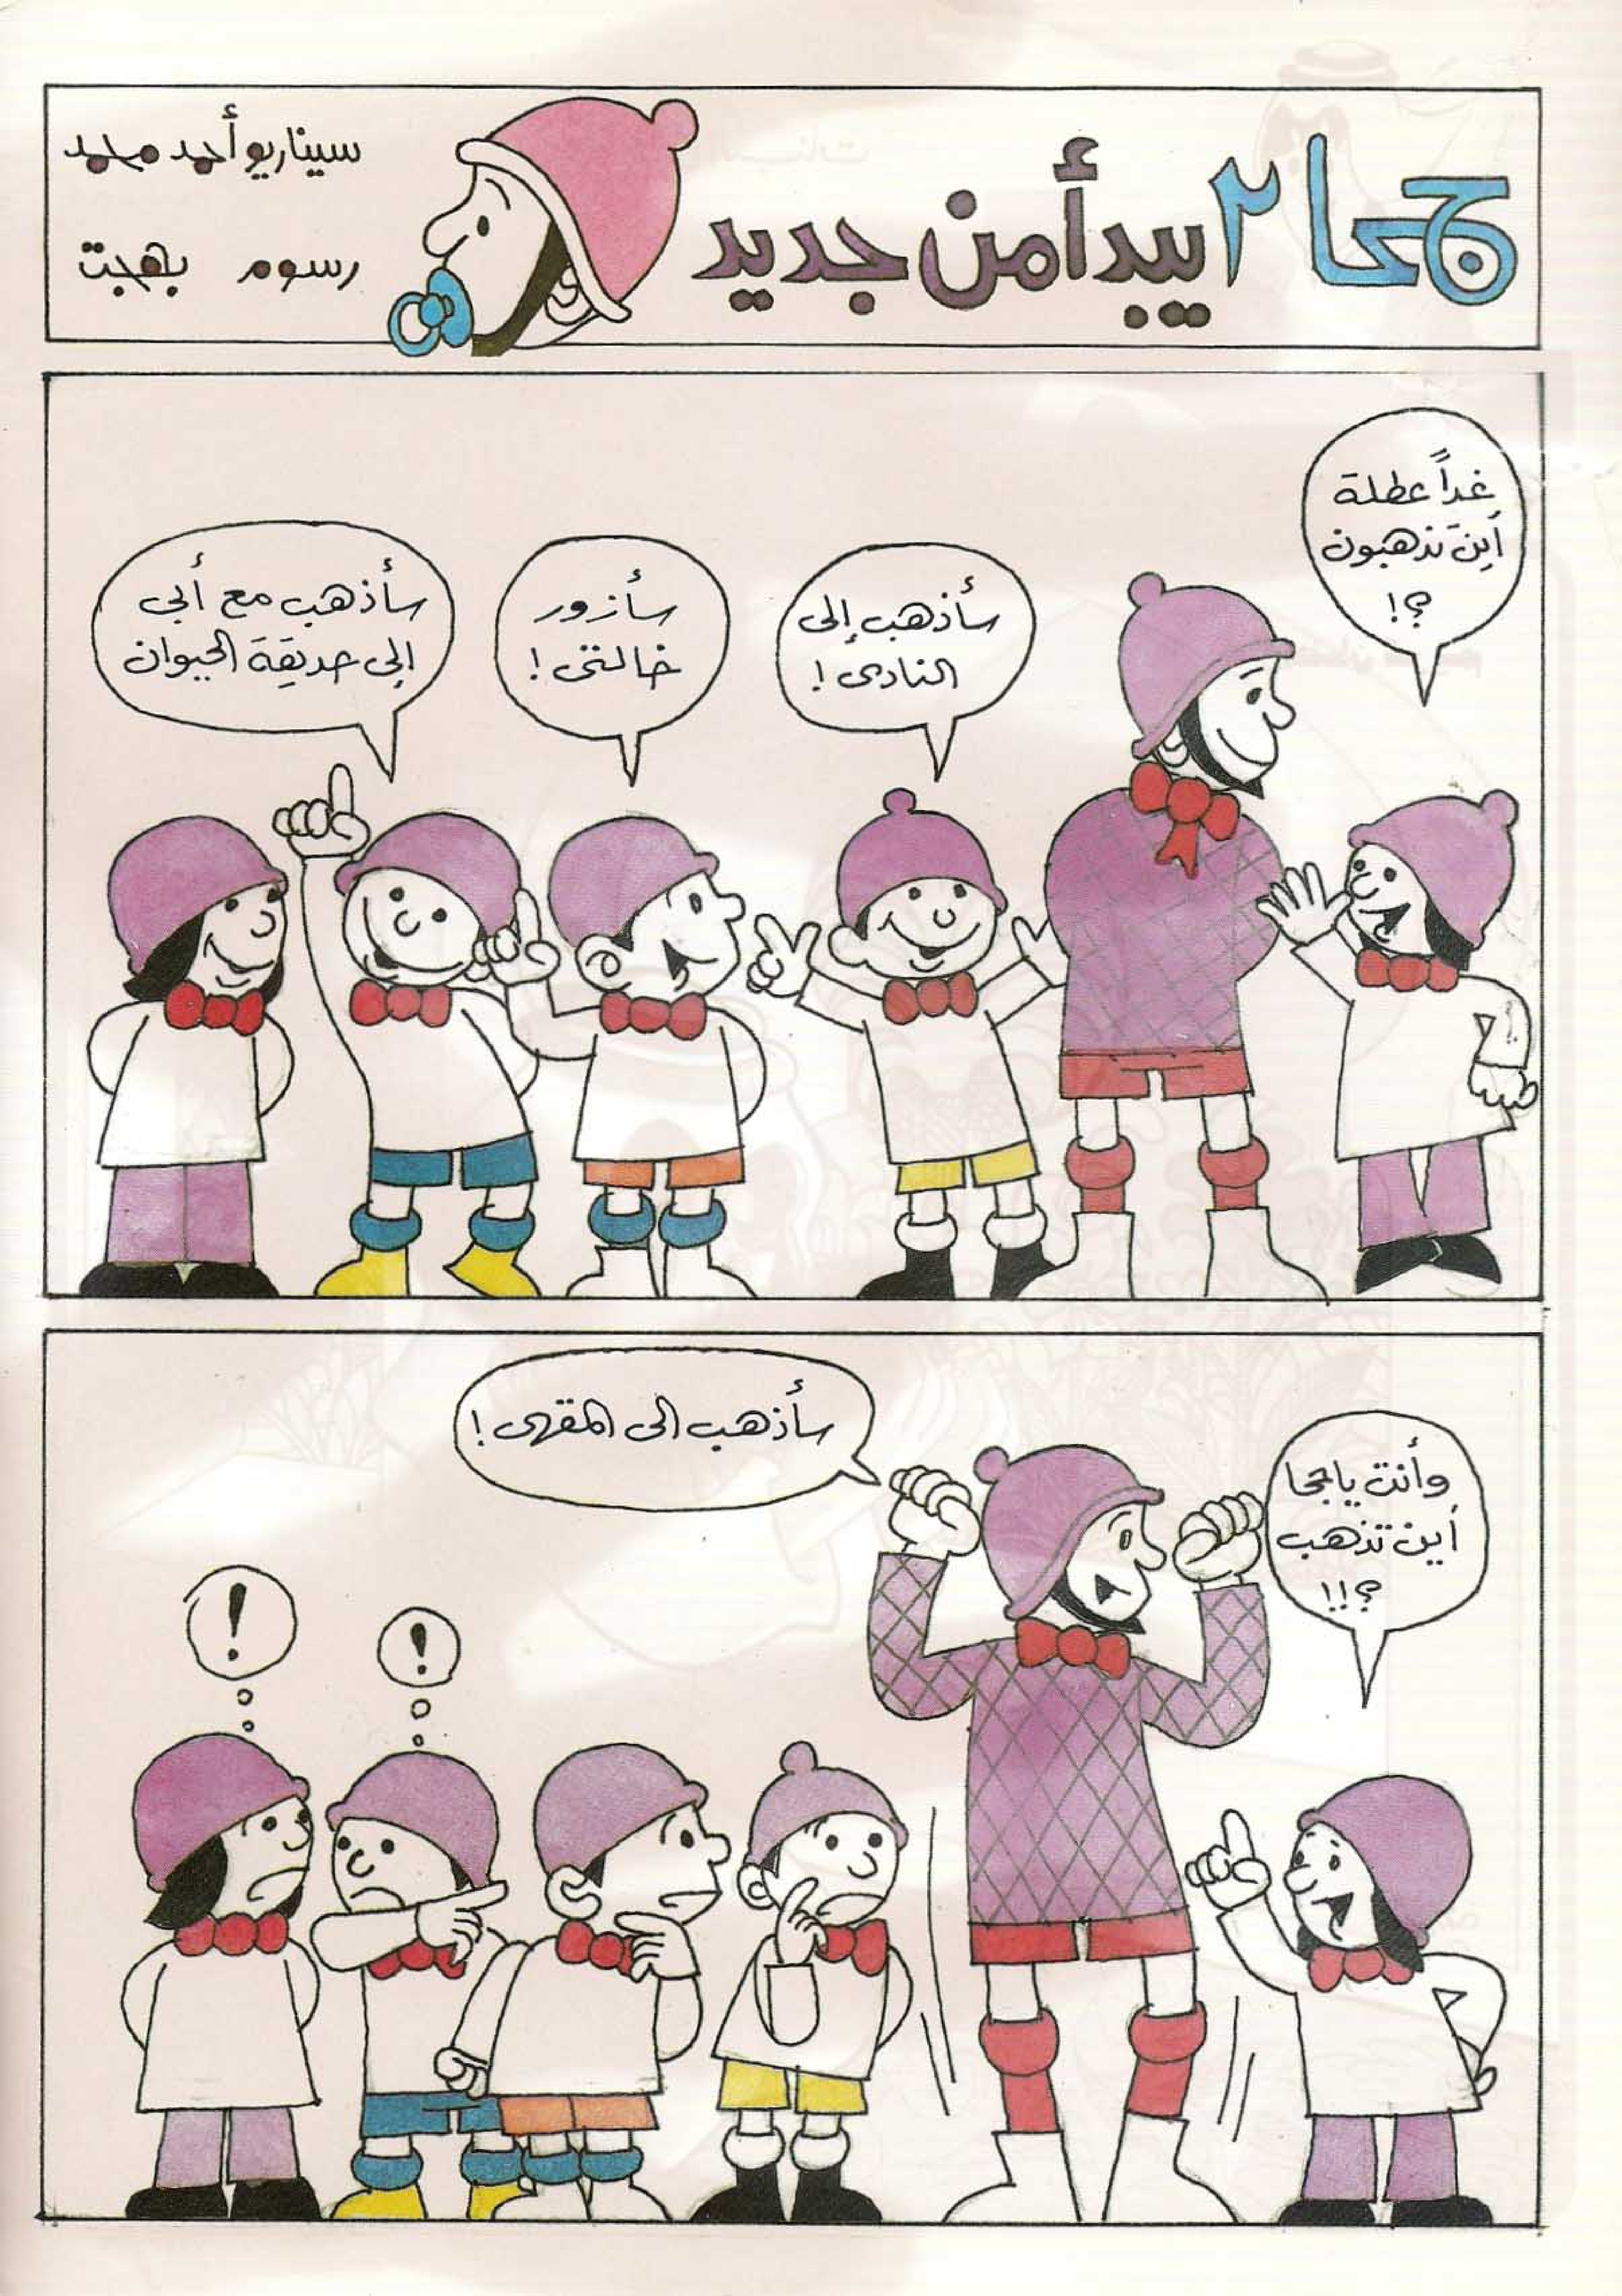 جحا ٢ يبدأ من جديد
سيناريو أحمد محمد
رسوم بهجت
غداً عطلة
أينَ تذهبون
؟!
سأذهب إلى
النادى!
سأزور
خالتى!
سأذهب مع أبي
إلى حديقة الحيوان
وأنت ياجحا
أين تذهب
؟!!
سأذهب الى المقهى!
!
!